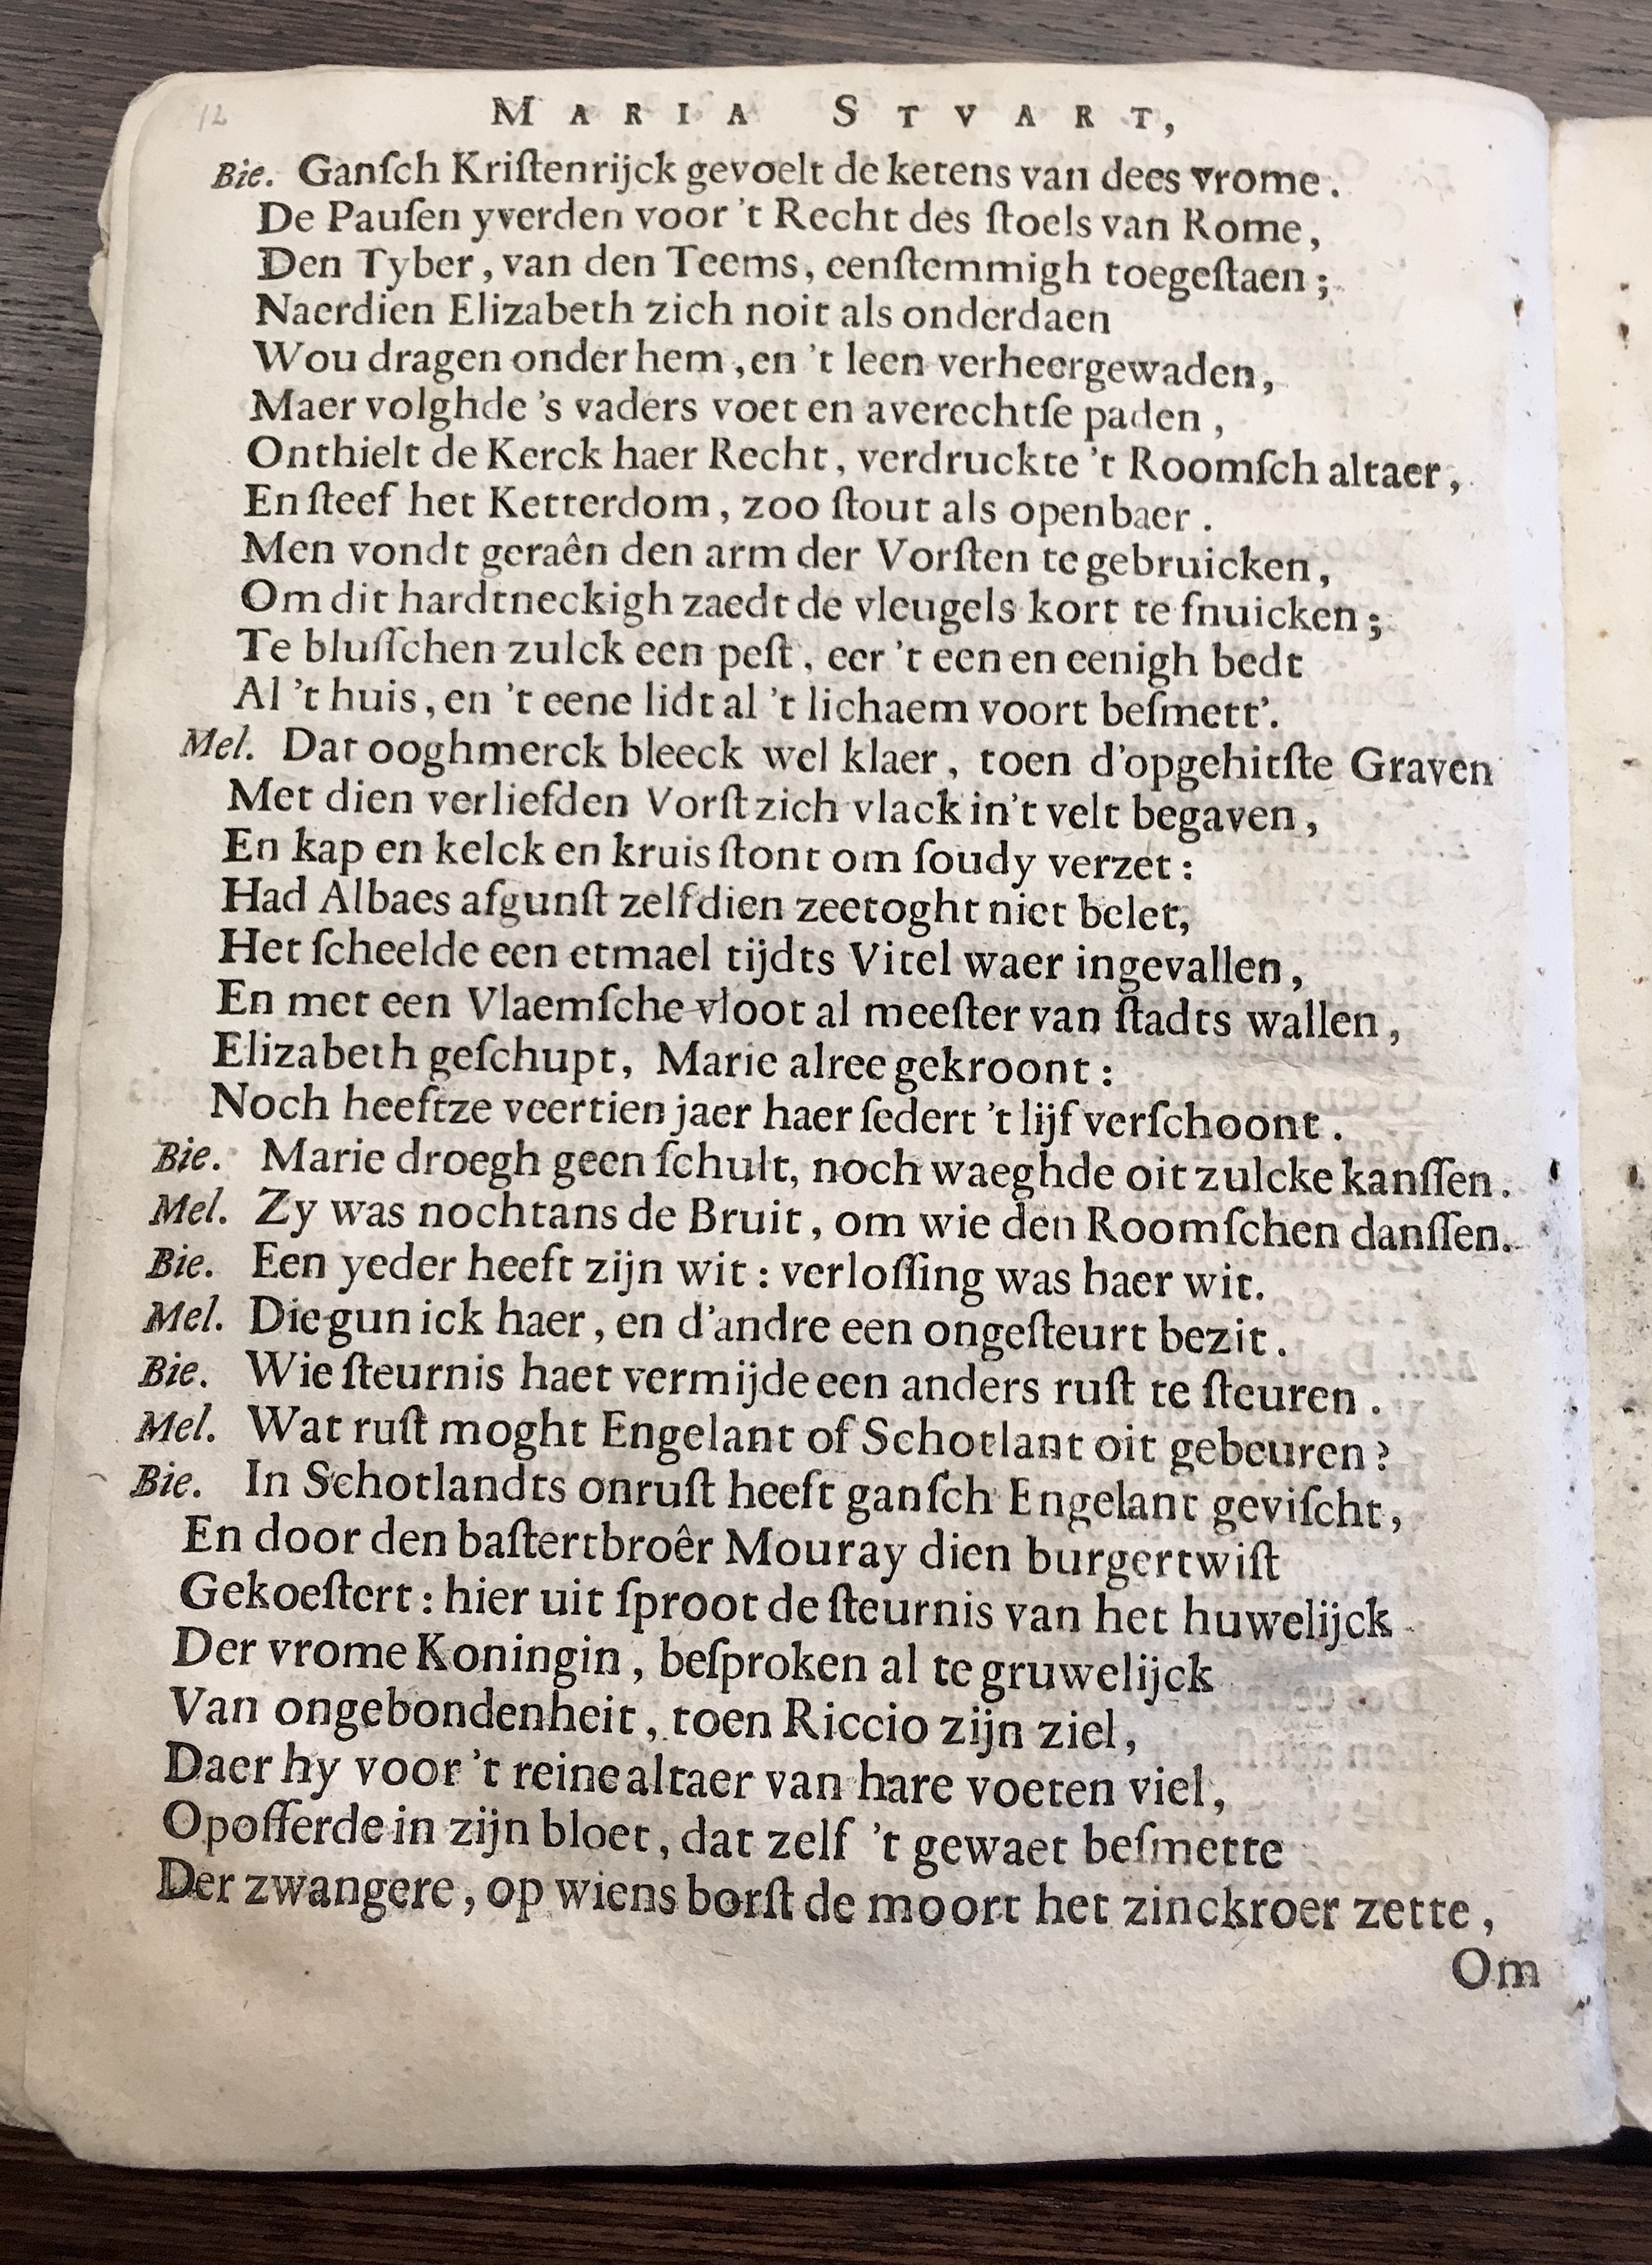 12
MARIA STVART,
Bie. Ganſch Kriſtenrijck gevoelt de ketens van dees vrome.
De Pauſen yverden voor 't Recht des ſtoels van Rome,
Den Tyber, van den Teems, eenſtemmigh toegeſtaen;
Naerdien Elizabeth zich noit als onderdaen
Wou dragen onder hem, en 't leen verheergewaden,
Maer volghde 's vaders voet en averechtſe paden,
Onthielt de Kerck haer Recht, verdruckte 't Roomſch altaer,
En ſteef het Ketterdom, zoo ſtout als openbaer.
Men vondt geraên den arm der Vorſten te gebruicken,
Om dit hardtneckigh zaedt de vleugels kort te ſnuicken;
Te bluſſchen zulck een peſt, eer 't een en eenigh bedt
Al 't huis, en 't eene lidt al 't lichaem voort beſmett'.
Mel. Dat ooghmerck bleeck wel klaer, toen d'opgehitſte Graven
Met dien verliefden Vorſt zich vlack in't velt begaven,
En kap en kelck en kruis ſtont om ſoudy verzet:
Had Albaes afgunſt zelf dien zeetoght niet belet,
Het ſcheelde een etmael tijdts Vitel waer ingevallen,
En met een Vlaemſche vloot al meeſter van ſtadts wallen,
Elizabeth geſchupt, Marie alree gekroont:
Noch heeftze veertien jaer haer ſedert 't lijf verſchoont.
Bie. Marie droegh geen ſchult, noch waeghde oit zulcke kanſſen.
Mel. Zy was nochtans de Bruit, om wie den Roomſchen danſſen.
Bie. Een yeder heeft zijn wit: verloſſing was haer wit.
Mel. Die gun ick haer, en d'andre een ongeſteurt bezit.
Bie. Wie ſteurnis haet vermijde een anders ruſt te ſteuren.
Mel. Wat ruſt moght Engelant of Schotlant oit gebeuren?
Bie. In Schotlandts onruſt heeft ganſch Engelant geviſcht,
En door den baſtertbroêr Mouray dien burgertwiſt
Gekoeſtert: hier uit ſproot de ſteurnis van het huwelijck
Der vrome Koningin, beſproken al te gruwelijck
Van ongebondenheit, toen Riccio zijn ziel,
Daer hy voor 't reine altaer van hare voeten viel,
Opofferde in zijn bloet, dat zelf 't gewaet beſmette
Der zwangere, op wiens borſt de moort het zinckroer zette,
Om